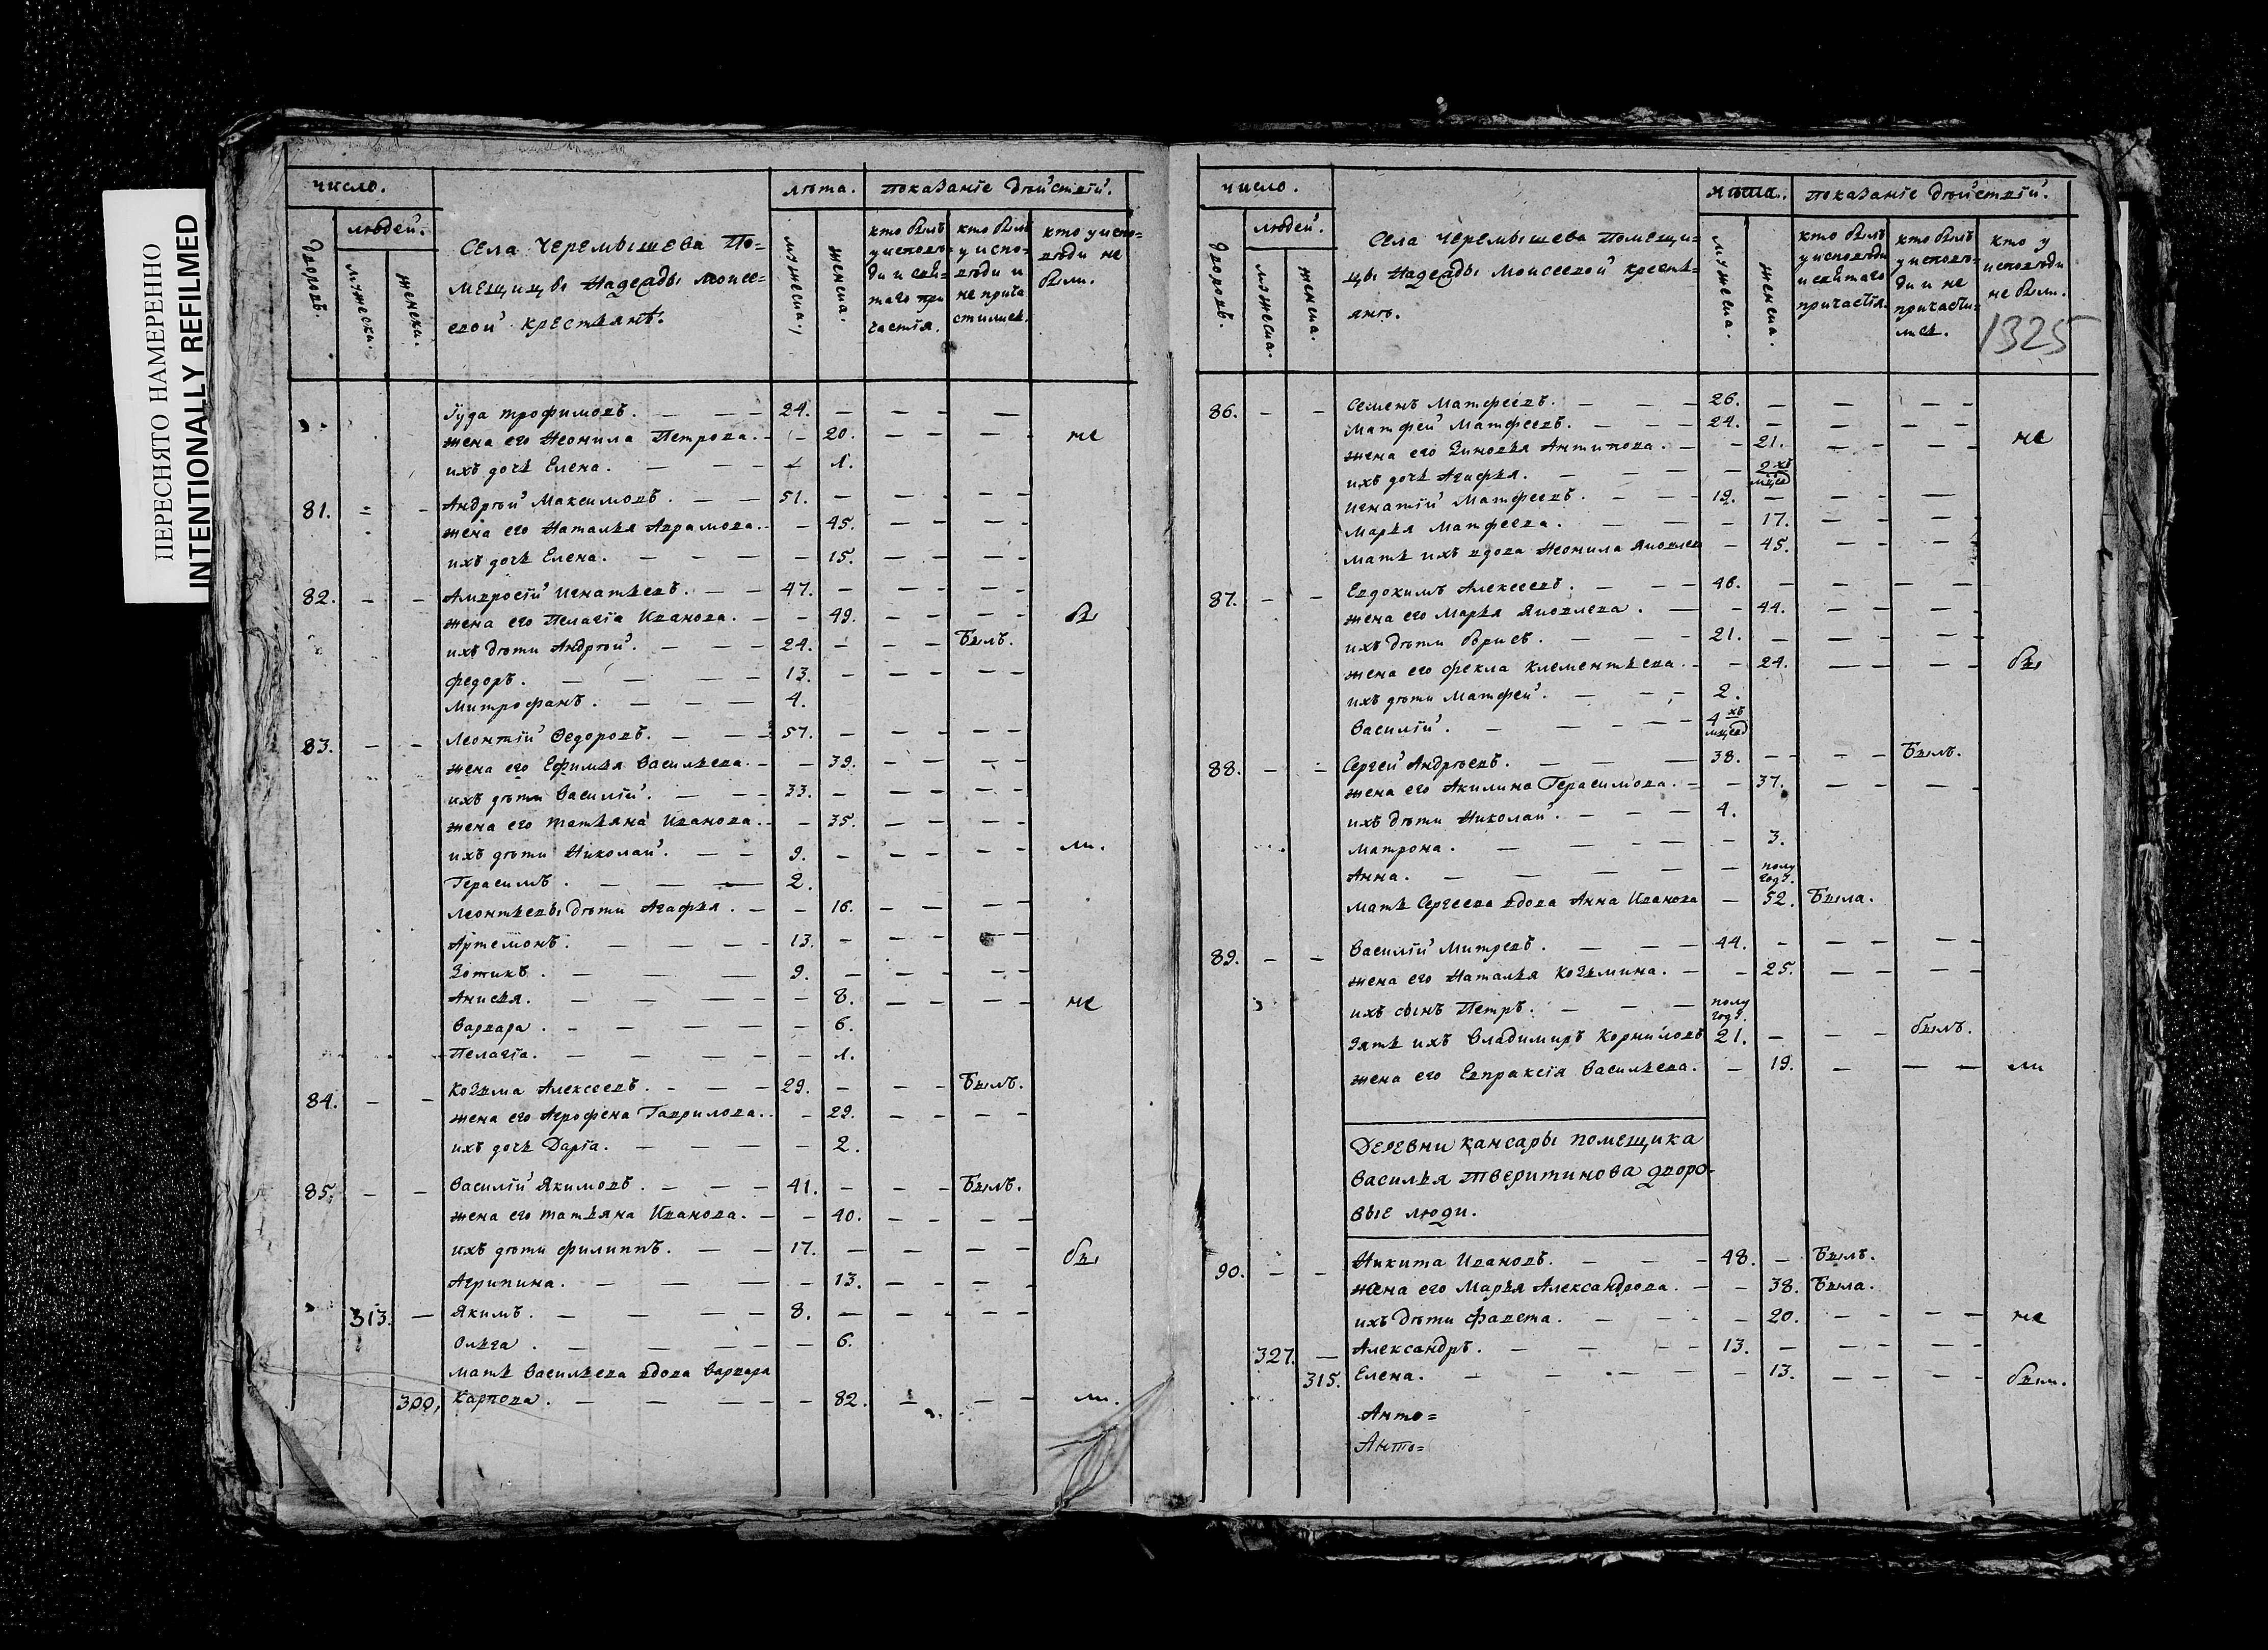 ПЕРЕСНЯТО НАМЕРЕННО
INTENTIONALLY REFILMED
число.
лѣта.
показаніе дѣйствій.
дворовъ.
людей.
мужеска.
женска.
Села Черемышева По=
мещицы Надежды Моисе=
евой крестьянъ.
мужеска.
женска.
кто былъ
у исповѣ-
ди и свя-
таго при
частія.
кто былъ
у испо-
вѣди и
не прича
стились.
кто у испо-
вѣди не
были.
Іуда Трофимовъ. — — — 24. — — — —
жена его Неонила Петрова. — — 20. — — — — не
ихъ дочь Елена. — — — — 1.
81. — — Андрѣй Максимовъ. — — 51. — — — — —
жена его Наталья Аврамова. — — 45. — — — —
ихъ дочь Елена. — — — — 15. — — — —
82. — — Амвросій Игнатьевъ. — — 47. — — — — —
жена его Пелагія Иванова. — — 49. — — — — бы
ихъ дѣти Андрѣй. — — — 24. — — — Былъ.
Федоръ. — — — — 13. — — — — —
Митрофанъ. — — — 4.
83. — — Леонтій Ѳедоровъ. — — 57. — — — — —
жена его Ефимья Васильева. — — 39. — — — —
ихъ дѣти Василій. — — — 33. — — — — —
жена его Татьяна Иванова. — — 35. — — — —
ихъ дѣти Николай. — — 9. — — — — — ли.
Герасимъ. — — — 2.
Леонтьевы дѣти Агафья. — — 16. — — — —
Артемонъ. — — — — 13. — — — — —
Зотикъ. — — — 9. — — — — —
Анисья. — — — — — 8. — — — — не
Варвара. — — — — — 6.
Пелагія. — — — — — 1.
84. — — Козьма Алексеевъ. — — — 29. — — — Былъ.
жена его Агрофена Гаврилова. — — 29. — — — —
ихъ дочь Дарія. — — — — 2.
85. — — Василій Якимовъ. — — — 41. — — — Былъ.
жена его Татьяна Иванова. — — 40. — — — —
ихъ дѣти Филиппъ. — — 17. — — — — — бы
Агрипина. — — — — 13. — — — —
313. — Якимъ. — — — — 8. — — — — —
Ольга. — — — — — 6.
мать Васильева вдова Варвара
300. Карпова. — — — — — 82. — — — ли.
число.
лѣта.
показаніе дѣйствій.
дворовъ.
людей.
мужеска.
женска.
Села Черемышева Помещи-
цы Надежды Моисеевой кресть-
янъ.
мужеска.
женска.
кто былъ
у исповѣди
и святаго
причастія.
кто былъ
у исповѣ-
ди и не
причасти-
лись.
кто у
исповѣди
не были.
1325
86. — — Семенъ Матфеевъ. — — — 26. — — — —
Матфей Матфеевъ. — — — 24. — — — —
жена его Зиновья Антипова. — — 21. — — — — не
ихъ дочь Агафья. — — — 2 хъ мцев
Игнатій Матфеевъ. — — — 19. — — — —
Марья Матфеева. — — — 17. — — —
мать ихъ вдова Неонила Яковлев — 45. — — — —
87. — — Евдокимъ Алексеевъ. — — — 46. — — — —
жена его Марья Яковлева. — — 44. — — — —
ихъ дѣти Борисъ. — — — 21. — — — — —
жена его Фекла Клементьева. — — 24. — — — — бы
ихъ дѣти Матфей. — — — 2.
Василій. — — — — 4 хъ мцев
88. — — Сергей Андрѣевъ. — — — 38. — — — — Былъ.
жена его Акилина Герасимова. — — 37. — — — —
ихъ дѣти Николай. — — — 4.
Матрона. — — — — — 3.
Анна. — — — — — полу году.
мать Сергеева вдова Анна Иванова — 52. Была.
89. — — Василій Митревъ. — — — 44. — — — — —
жена его Наталья Козьмина. — — 25. — — — —
ихъ сынъ Петръ. — — — полу году.
Зять ихъ Владимиръ Корниловъ 21. — — — былъ.
жена его Евпраксія Васильева. — 19. — — — ли
Деревни Кансары помещика
Василья Тверитинова дворо-
вые люди.
90. — — Никита Ивановъ. — — — 48. — Былъ.
жена его Марья Александрова. — — 38. Была.
ихъ дѣти Фавета. — — — — 20. — — — — не
327. — Александръ. — — — — 13. — — — — —
315. Елена. — — — — — 13. — — — — были.
Анто=
Анто=